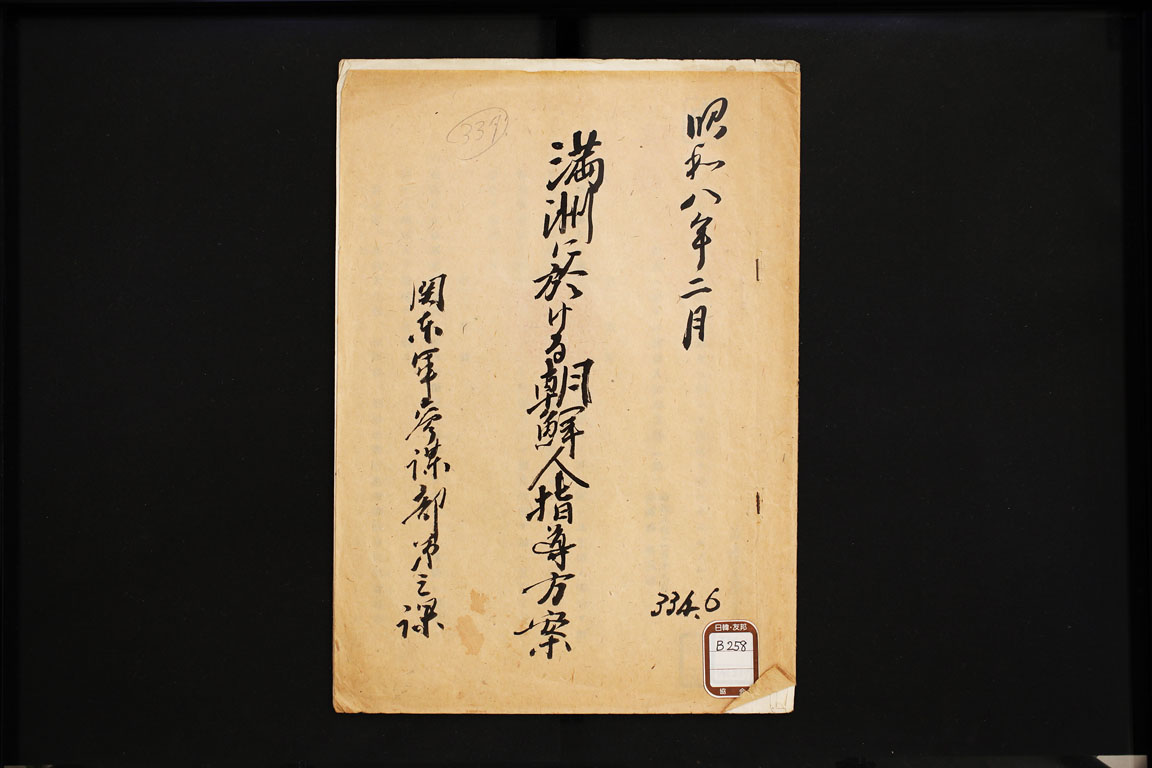 昭和八年二月
満洲に於ける朝鮮人指導方案
関東軍参謀部第三課
334.6
日韓・友邦
B 258
協会